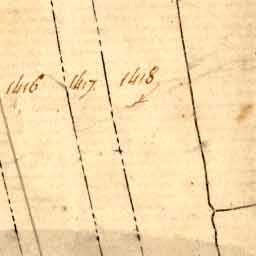 1416 1417. 1418